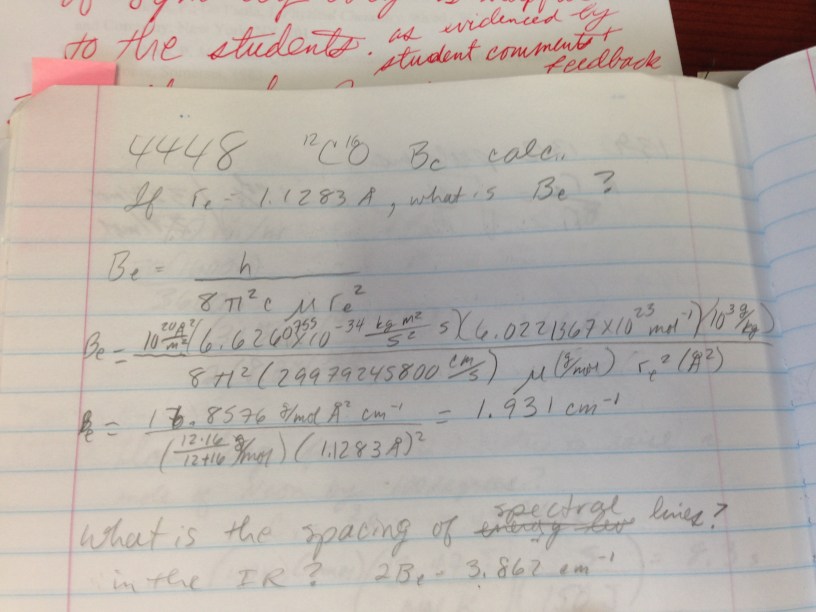 to the students. as evidenced by
student comments +
feedback
4448 ¹²C¹⁶O Be calc.
If re = 1.1283 Å, what is Be ?
Be = h
8 π² c μ re²
Be = 10²⁰ Å²/m² (6.6260755 × 10⁻³⁴ kg m²/s² s)(6.0221367 × 10²³ mol⁻¹)(10³ g/kg)
8 π² (29979245800 cm/s) μ (g/mol) re² (Å²)
Be = 16.8576 g/mol Å² cm⁻¹ = 1.931 cm⁻¹
(12·16/12+16 g/mol)(1.1283 Å)²
What is the spacing of spectral lines?
in the IR? 2Be = 3.862 cm⁻¹